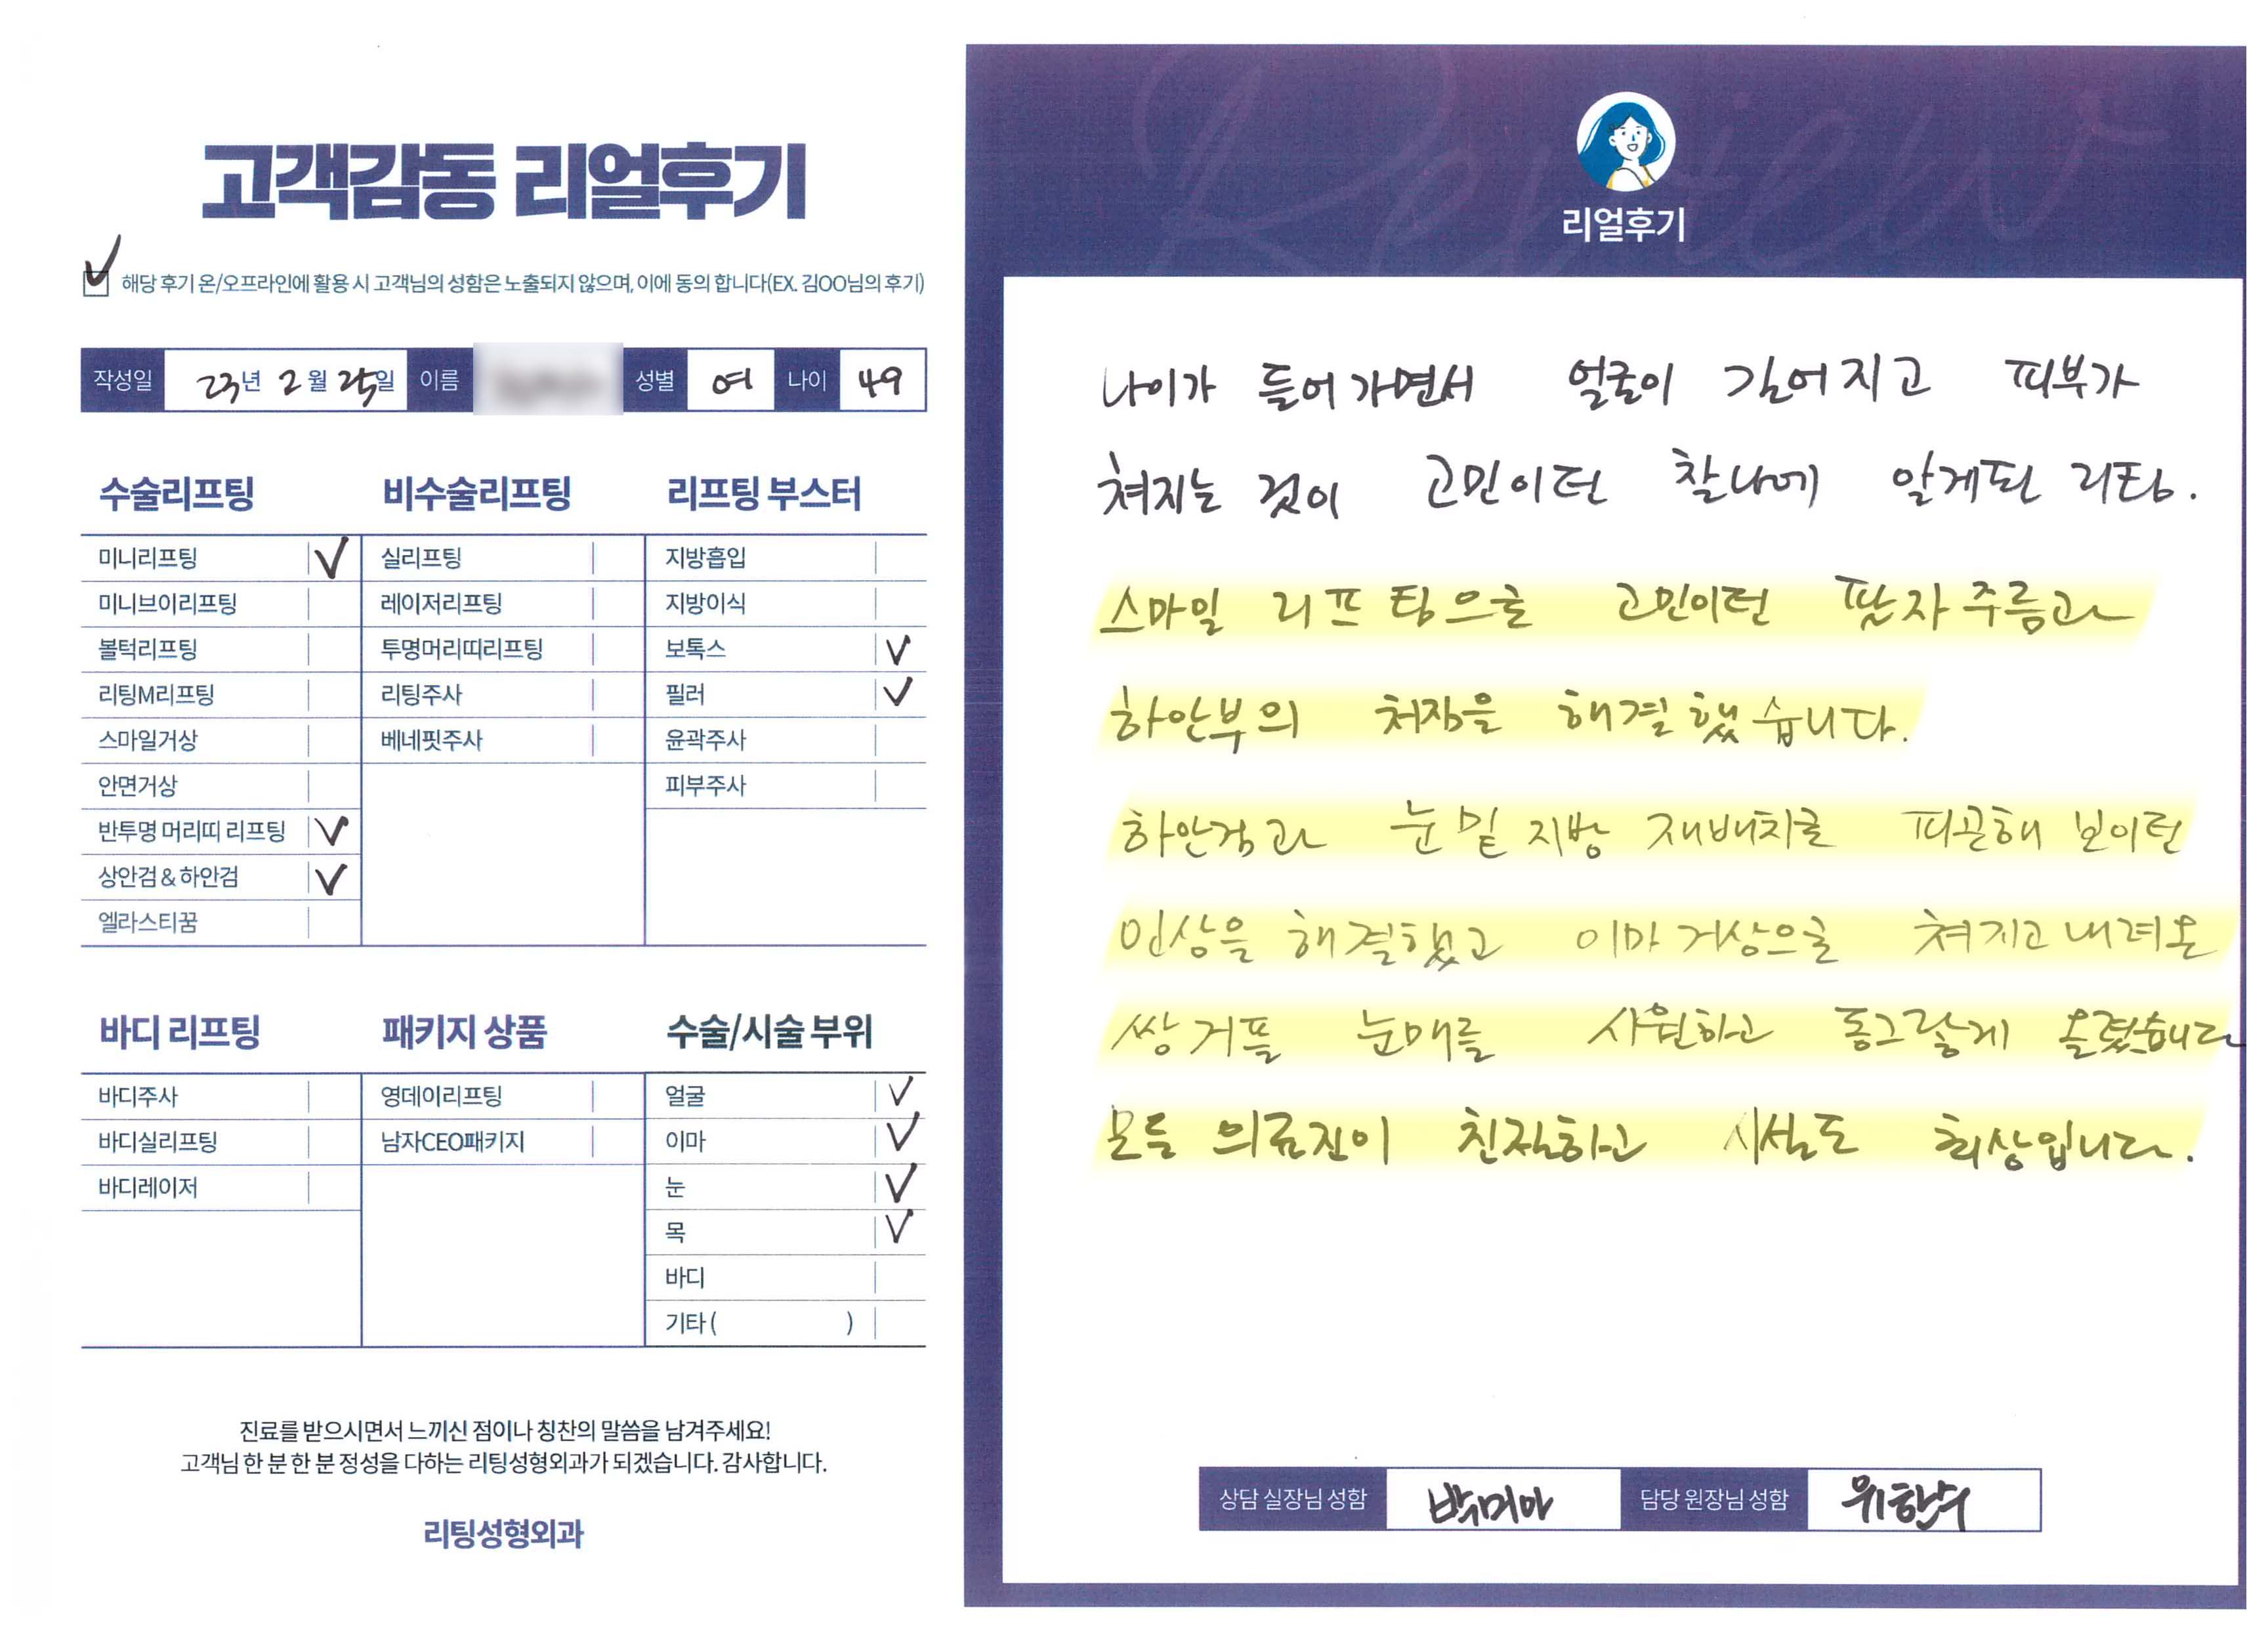 고객감동 리얼후기
해당 후기 온/오프라인에 활용 시 고객님의 성함은 노출되지 않으며, 이에 동의 합니다(EX. 김OO님의 후기)
작성일 23년 2월 25일 이름 성별 여 나이 49
수술리프팅
미니리프팅
미니브이리프팅
볼턱리프팅
리팅M리프팅
스마일거상
안면거상
반투명 머리띠 리프팅
상안검 & 하안검
엘라스티꿈
비수술리프팅
실리프팅
레이저리프팅
투명머리띠리프팅
리팅주사
베네핏주사
리프팅 부스터
지방흡입
지방이식
보톡스
필러
윤곽주사
피부주사
바디 리프팅
바디주사
바디실리프팅
바디레이저
패키지 상품
영데이리프팅
남자CEO패키지
수술/시술 부위
얼굴
이마
눈
목
바디
기타 ( )
진료를 받으시면서 느끼신 점이나 칭찬의 말씀을 남겨주세요!
고객님 한 분 한 분 정성을 다하는 리팅성형외과가 되겠습니다. 감사합니다.
리팅성형외과
Review
리얼후기
나이가 들어가면서 얼굴이 길어지고 피부가
쳐지는 것이 고민이던 찰나에 알게된 리팅.
스마일 리프팅으로 고민이던 팔자주름과
하안부의 처짐을 해결했습니다.
하안검과 눈밑 지방 재배치로 피곤해 보이던
인상을 해결했고 이마거상으로 쳐지고 내려온
쌍거풀 눈매를 시원하고 동그랗게 올렸습니다
모든 의료진이 친절하고 시설도 최상입니다.
상담 실장님 성함 담당 원장님 성함 위한수